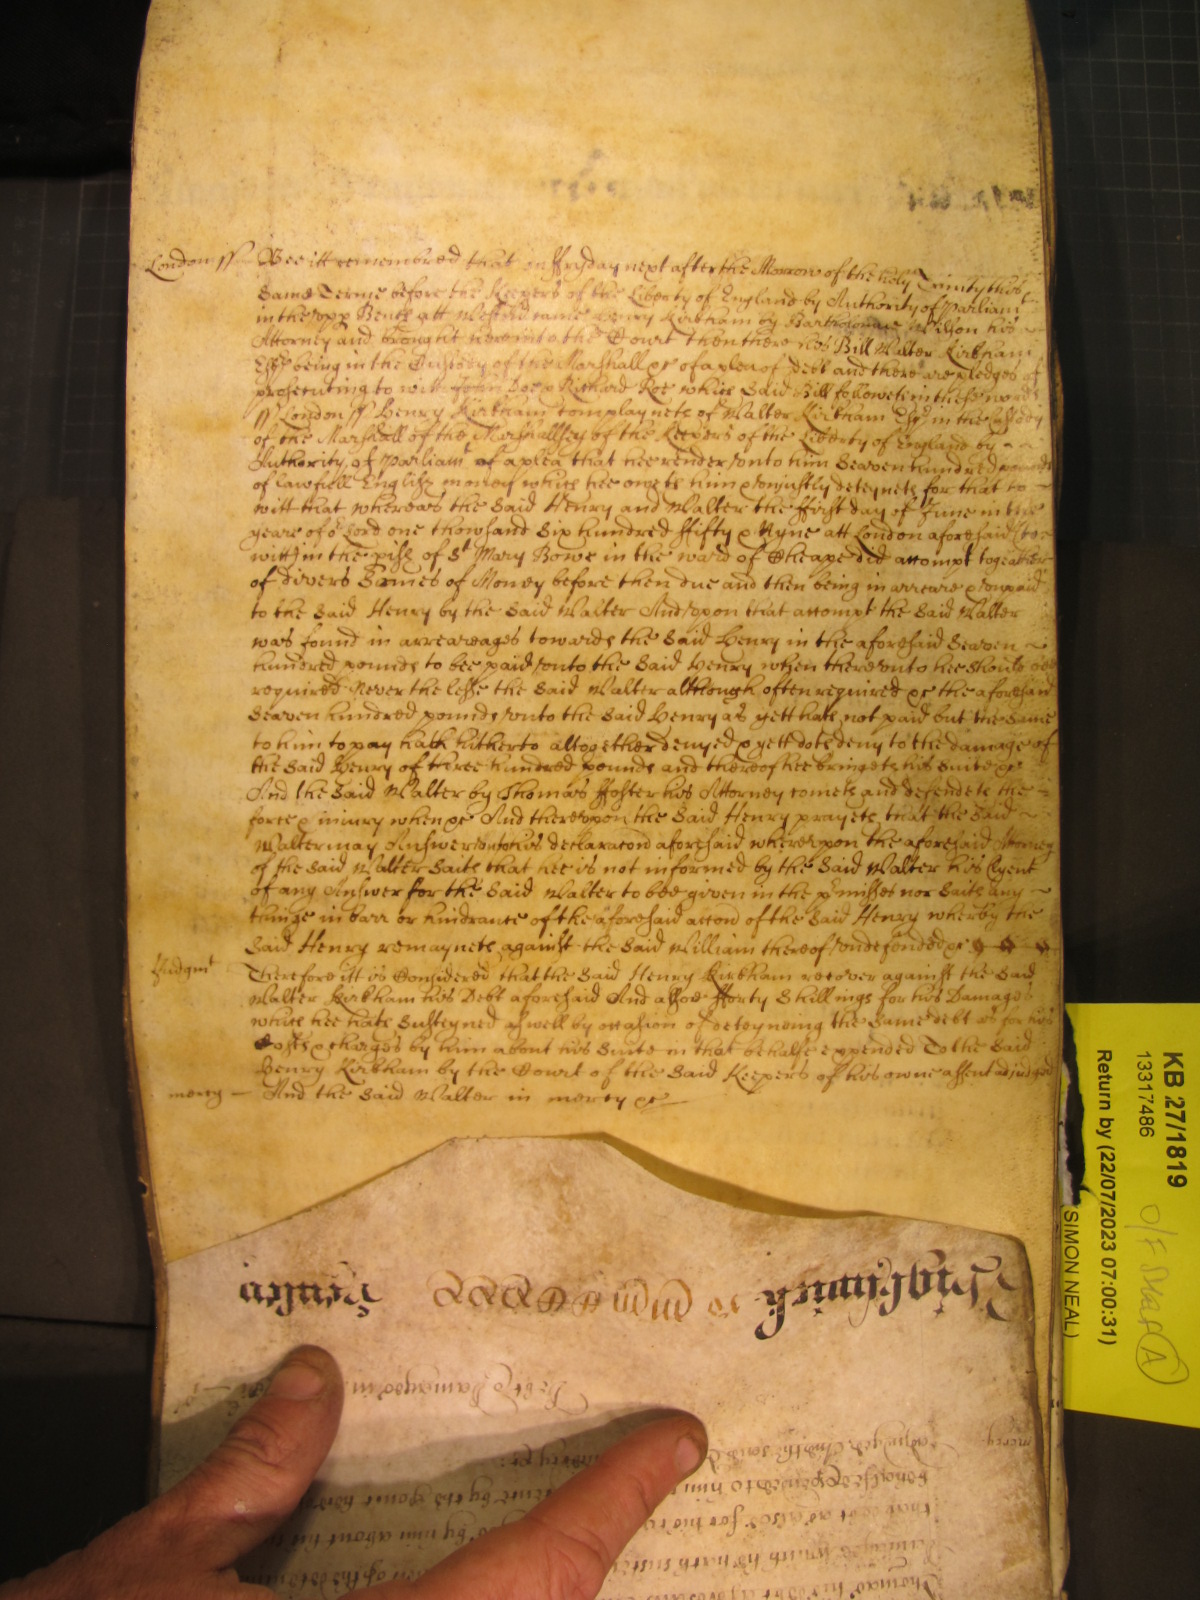 London ss Bee itt remembred that on ffryday next after the Morrow of the holy Trinity this
Same Terme before the Keepers of the Liberty of England by Authority of Parliamt
in the vpp Bench att Westmr came Henry Kirkham by Bartholomew Wilson his
Attorney and brought here into the Court then there his Bill Walter Kirkham
Esqr being in the Custody of the Marshall &c of a plea of debt and there are pledges of
prosecuting to witt John Doe & Richard Roe which Said Bill followeth in these words
ss London ss Henry Kirkham complayneth of Walter Kirkham Esqr in the Custody
of the Marshall of the Marshallsey of the Keepers of the Liberty of England by
Authority of Parliamt of a plea that hee render vnto him Seaven hundred pounds
of lawfull English money which hee oweth him & vnjustly deteyneth for that to
witt that whereas the Said Henry and Walter the ffirst day of June in the
yeare of or Lord one thowsand Six hundred ffifty & Nyne att London aforesaid (to
witt) in the pish of St Mary Bowe in the ward of Cheape did accompt together
of divers Summes of Money before then due and then being in arreare & vnpaid
to the Said Henry by the Said Walter And vpon that accompt the Said Walter
was found in arreareages towards the Said Henry in the aforesaid Seaven
hundred pounds to bee paid vnto the Said Henry when therevnto hee should bee
required Neverthelesse the Said Walter although often required &c the aforesaid
Seaven hundred pounds vnto the Said Henry as yett hath not paid but the same
to him to pay hath hitherto altogether denyed & yett doth deny to the damage of
the Said Henry of three hundred pounds and thereof hee bringeth his suite &c
And the Said Walter by Thomas ffoster his Attorney cometh and defendeth the
force & iniury when &c And therevpon the Said Henry prayeth that the Said
Walter may Answer vnto his declaracon aforesaid wherevpon the aforesaid Attorney
of the Said Walter Saith that hee is not informed by the Said Walter his Clyent
of any Answer for the Said Walter to bee given in the pmisses nor Saith any
thinge in barr or hindrance of the aforesaid accon of the Said Henry whereby the
Said Henry remayneth against the Said William thereof vndefended &c
Judgmt Therefore itt is Considered that the Said Henry Kirkham recover against the Said
Walter Kirkham his Debt aforesaid And alsoe fforty Shillings for his Damages
which hee hath Susteyned aswell by occasion of deteyneing the Same debt as for his
Costs & charges by him about his Suite in that behalfe expended To the Said
Henry Kirkham by the Court of the Said Keepers of his owne assent adjudged
mercy And the Said Walter in mercy &c
KB 27/1819
13317486
Return by (22/07/2023 07:00:31)
SIMON NEAL)
A